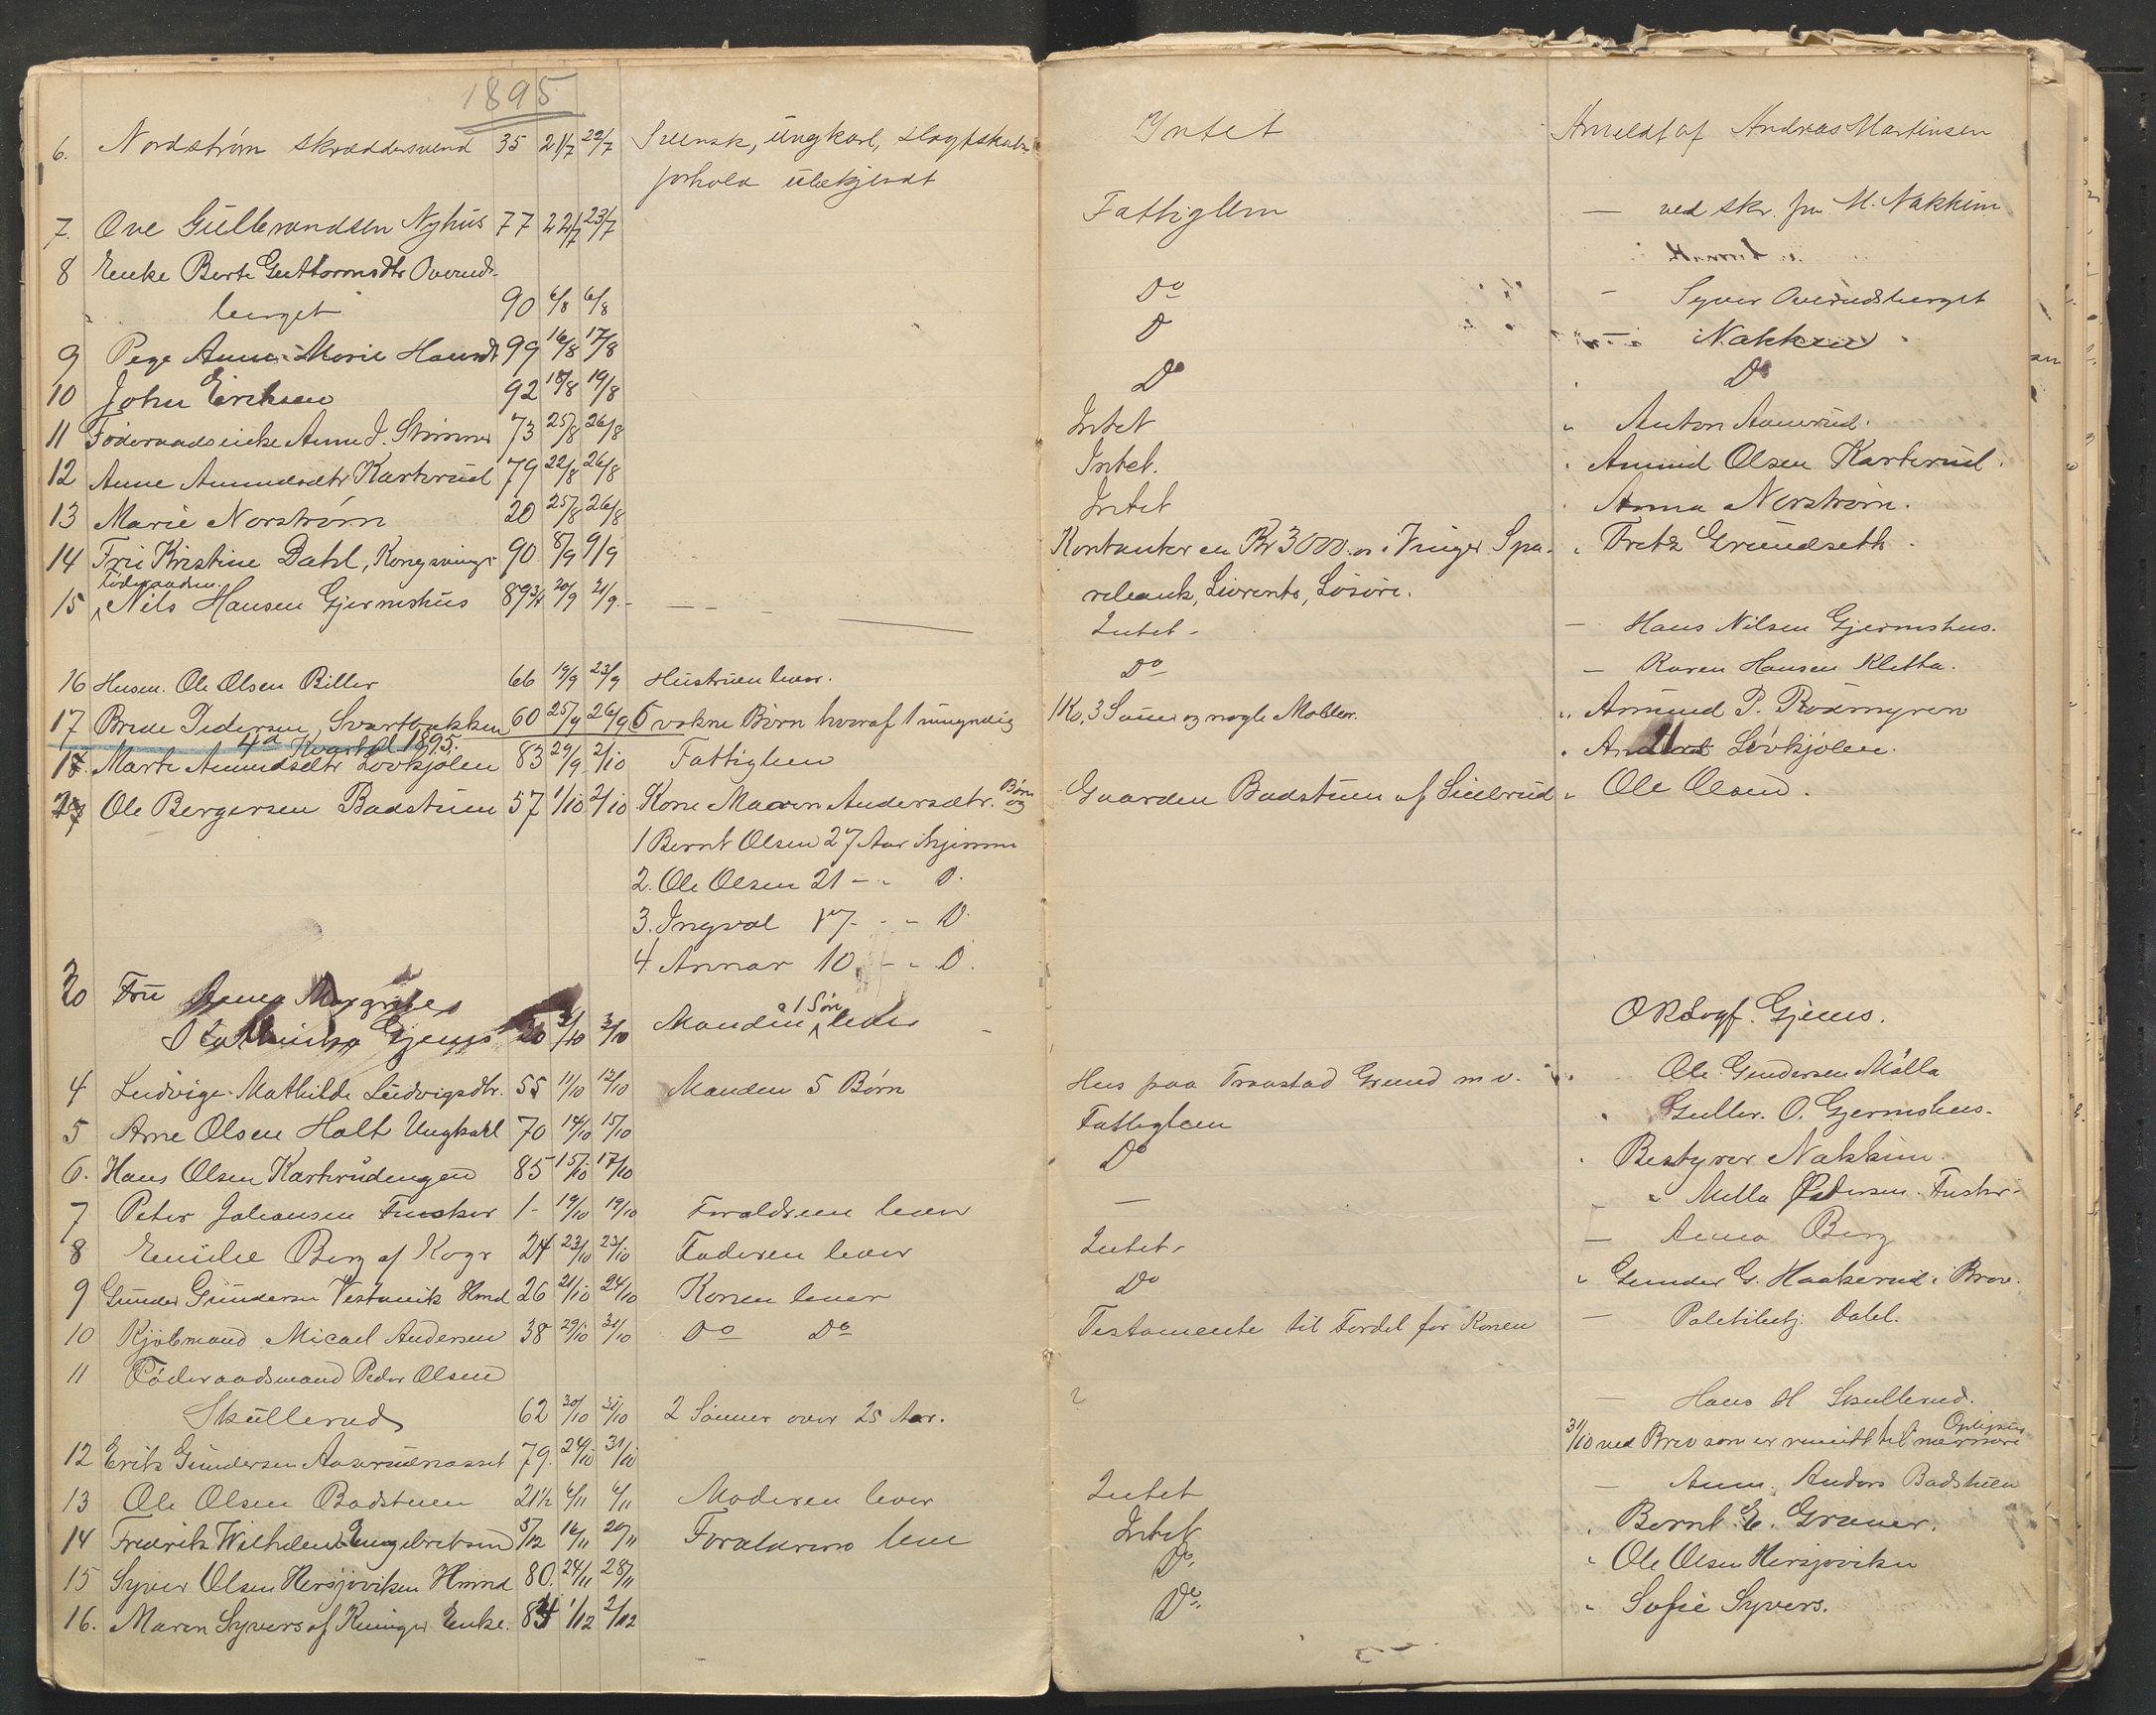 1895
6. Nordstrøm Skræddersvend 35 21/7 22/7 Svensk, ungkarl, slægtskabs- Intet Anmeldt af Andreas Martinsen
forhold ubekjendt
7. Ove Gulbrandsen Nyhus 77 22/7 23/7 Fattiglem — ved skr. fra M. Nakkim
8 Enke Berte Guttormsdtr Overuds-
berget 90 6/8 6/8 Do - Syver Overudsberget
9 Pege Anne Marie Hansdt 99 16/8 17/8 D - Nakken
10 John Eriksen 92 18/8 19/8 Do Do
11 Föderaadsenke Anne J. 73 25/8 26/8 Intet " Anton Aamrud.
12 Anne Amundsdtr Karterud 79 22/8 26/8 Intet. " Amund Olsen Karterud.
13 Marie Norstrøm 20 25/8 26/8 Intet " Anna Norstrøm.
14 Frü Kristine Dahl, Kongsving. 90 8/9 9/9 Kontanter ca Kr 3000 i Vinger Spa- " Fretz Grundseth.
rebank, Livrente, Løsöre.
Föderaadsm.
15 Nils Hansen Gjermshus 89 3/4 20/9 21/9. - Intet - — Hans Nilsen Gjermshus.
16 Husm. Ole Olsen Biller 66 19/9 23/9 Hustruen lever. Do — Karen Hansen Kletta.
17 Brede Pedersen Svartbakken 60 25/9 26/9 5 voksne Börn hvoraf 1 umyndig 1 Ko, 3 Sauer og nogle Möbler. " Amund P. Rösmyren
4de Kvartal 1895.
1. Marte Amundsdtr Lövkjolen 83 29/9 2/10 Fattiglem " Lövkjolen.
2 Ole Bergersen Badstuen 57 1/10 2/10 Kone Maren Andersdtr. og Börn Gaarden Badstuen af Lierud " Ole Olsen.
1 Bernt Olsen 27 Aar hjemme
2. Ole Olsen 21 - " D.
3. Ingval 17 - " D.
4. Annar 10 - " D.
3 Fru Anna Margrethe
Gjems 3/10 Manden & 1 Sön lever - O.R.Sagf. Gjems.
4 Ludvige Mathilde Ludvigsdtr. 55 11/10 12/10 Manden 5 Børn Hus paa Traastad Grund m.v. Ole Gundersen Mölla
5 Arne Olsen Holt Ungkarl 70 14/10 15/10 Fattiglem " Gulbr. O. Gjermshus.
6. Hans Olsen Karterudengen 85 15/10 17/10 Do " Bestyrer Nakkim.
7 Peter Johansen Fusker 1 - 19/10 19/10 Foraldrene lever — " Milla Pedersen Fusker.
8 Emilie Berg af Kogr 24 23/10 23/10 Faderen lever Intet - — Anna Berg
9 Gunder Gundersen Vestmik Hmd 26 21/10 24/10 Konen lever Do " Gunder G. Haakerud i Brev.
10 Kjöbmand Micael Andersen 38 29/10 31/10 Do Do Testamente til Fordel for Konen — Politibetj. Dahl.
11 Föderaadsmand Peder Olsen
Skullerud 62 30/10 31/10 2 Sönner over 25 Aar. ? — Hans H Skullerud.
12 Erik Gundersen 79. 24/10 31/10 31/10 ved Brev som er remitt til nærmere Oplysn.
13 Ole Olsen Badstuen 21 1/2 6/11 6/11 Moderen lever Intet — Anm. Anders Badstuen
14 Fredrik Wilhelm Engebretsen 5/12 16/11 20/11 Forældrene leve Intet " Bernt E. Graner.
15 Syver Olsen Hersjoviken Hmnd 80. 24/11 28/11 Do. " Ole Olsen Hersjoviken
16. Maren Syvers af Kvinger Enke. 84 1/12 2/12 Do. " Sofie Syvers.